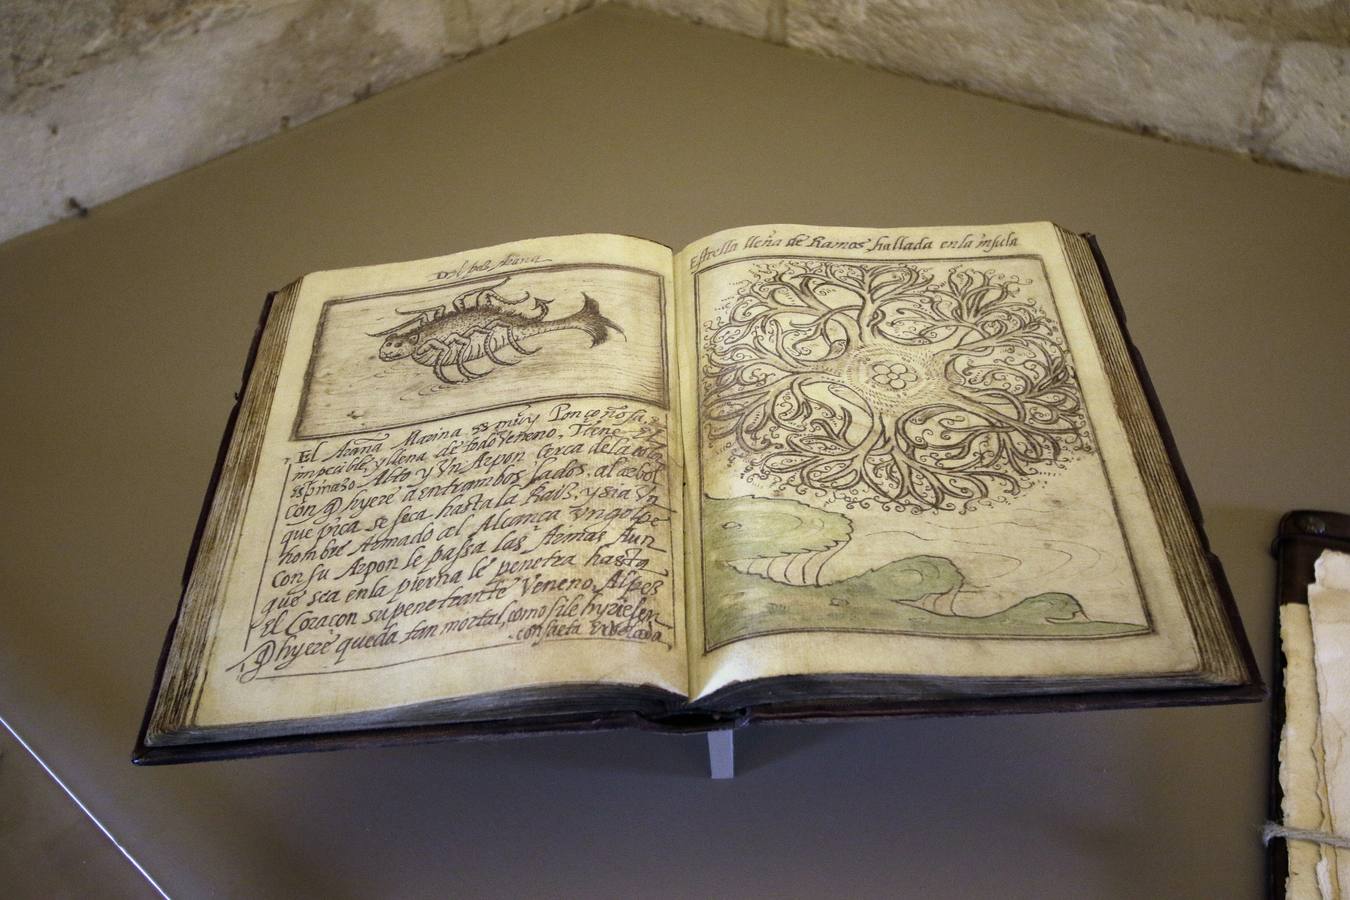 Del pes Araña
El Araña Marina es muy Ponçoñosa,
impecible, y llena de todo Veneno, Tiene
espinazo Alto y Vn Arpon Cerca de la
con q̃ hyere a entrambos lados, al arbol
que pica se seca hasta la Raiz, y si a Vn
hombre Armado al Alcança Vn golpe
con su Arpon le passa las Armas Aun
que sea en la pierna le penetra hasta
el Coraçon su penetrante Veneno, Al pes
q̃ hyere queda tan mortal, como si le hyriesen
con saeta
Estrella lleña de Ramos hallada en la insula